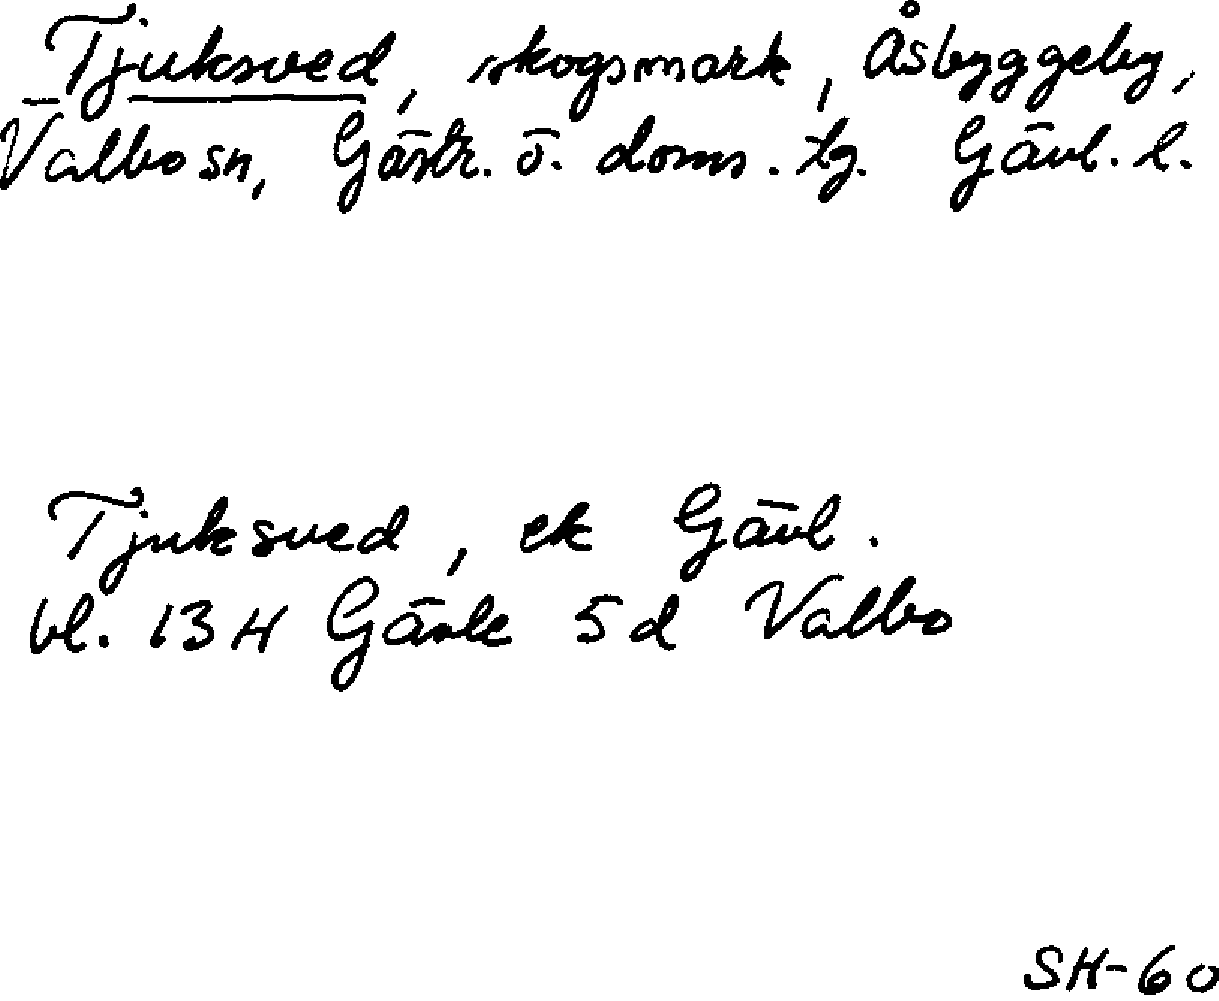 Tjuksved, skogsmark, Åsbyggeby,
Valbo sn, Gästr. ö. doms. tg. Gävl. l.
Tjuksved, ek Gävl.
bl. 13 H Gävle 5 d Valbo
SH-60